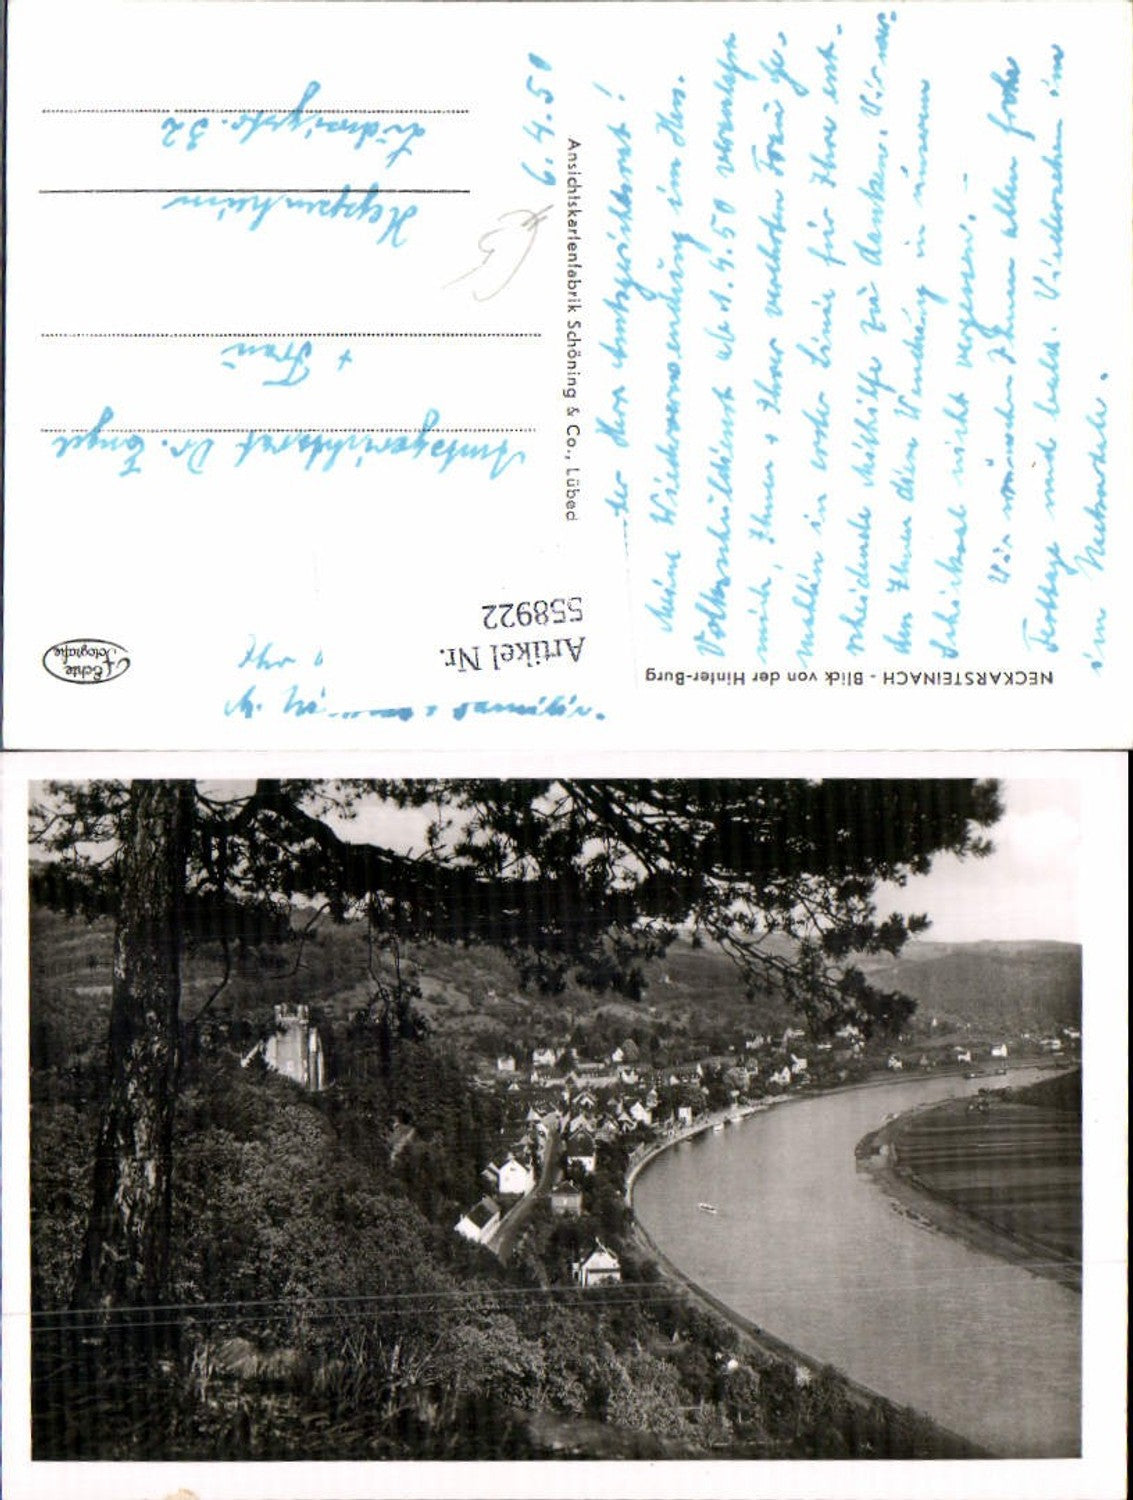 NECKARSTEINACH - Blick von der Hinter-Burg
Echte
Fotografie
Artikel Nr.
558922
Ansichtskartenfabrik Schöning & Co., Lübeck
9.4.50
Herr Amtsgerichtsrat!
Meine Wiederverwendung im Hess.
Volksschuldienst ab 1.4.50 veranlaßt
mich, Ihnen + Ihrer verehrten Frau Ge-
mahlin in erster Linie für Ihre ent-
scheidende Mithilfe zu danken. Wir wer-
den Ihnen diese Wendung in unserem
Schicksal nicht vergessen. -
Wir wünschen Ihnen allen frohe
Festtage und bald. Wiedersehen im
im Neckartale.
Amtsgerichtsrat Dr. Engel
+ Frau
Heppenheim
Ludwigstr. 32